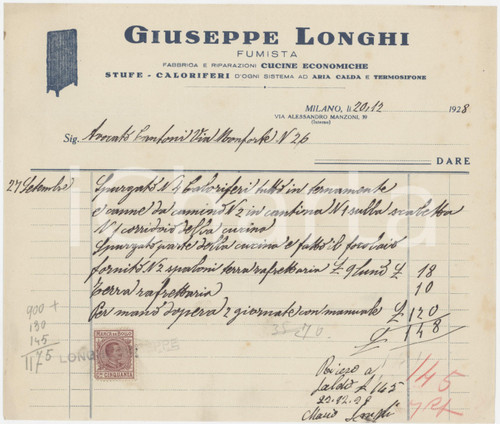 GIUSEPPE LONGHI
FUMISTA
FABBRICA E RIPARAZIONI CUCINE ECONOMICHE
STUFE - CALORIFERI D'OGNI SISTEMA AD ARIA CALDA E TERMOSIFONE
MILANO, li 20.12 1928
VIA ALESSANDRO MANZONI, 39
(Interno)
Sig. Avocato Cantoni Via Monforte N 26
DARE
27 Setembre Spurgato N 4 Caloriferi tutto in ternamente
e canne da camino N 2 in cantina N 1 sulla scaletta
N 1 corridoio della cucina
Spurgato parte della cucina e fatto il focolaio
fornito N 2 spaloni terra rafrettaria £ 9 L'uno £ 18
Terra rafrettaria 10
Per mano d'opera 2 giornate con manuale £ 120
£ 148
900 +
130
145
1175
MARCA DA BOLLO
CINQUANTA
35 70
Riceso a
saldo £ 145
20.12.28
Mario Longhi
145